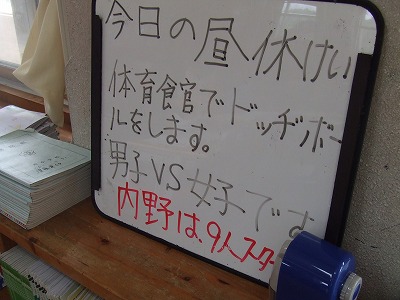 今日の昼休けい
体育館でドッヂボー
ルをします。
男子VS女子です
内野は、9人スター